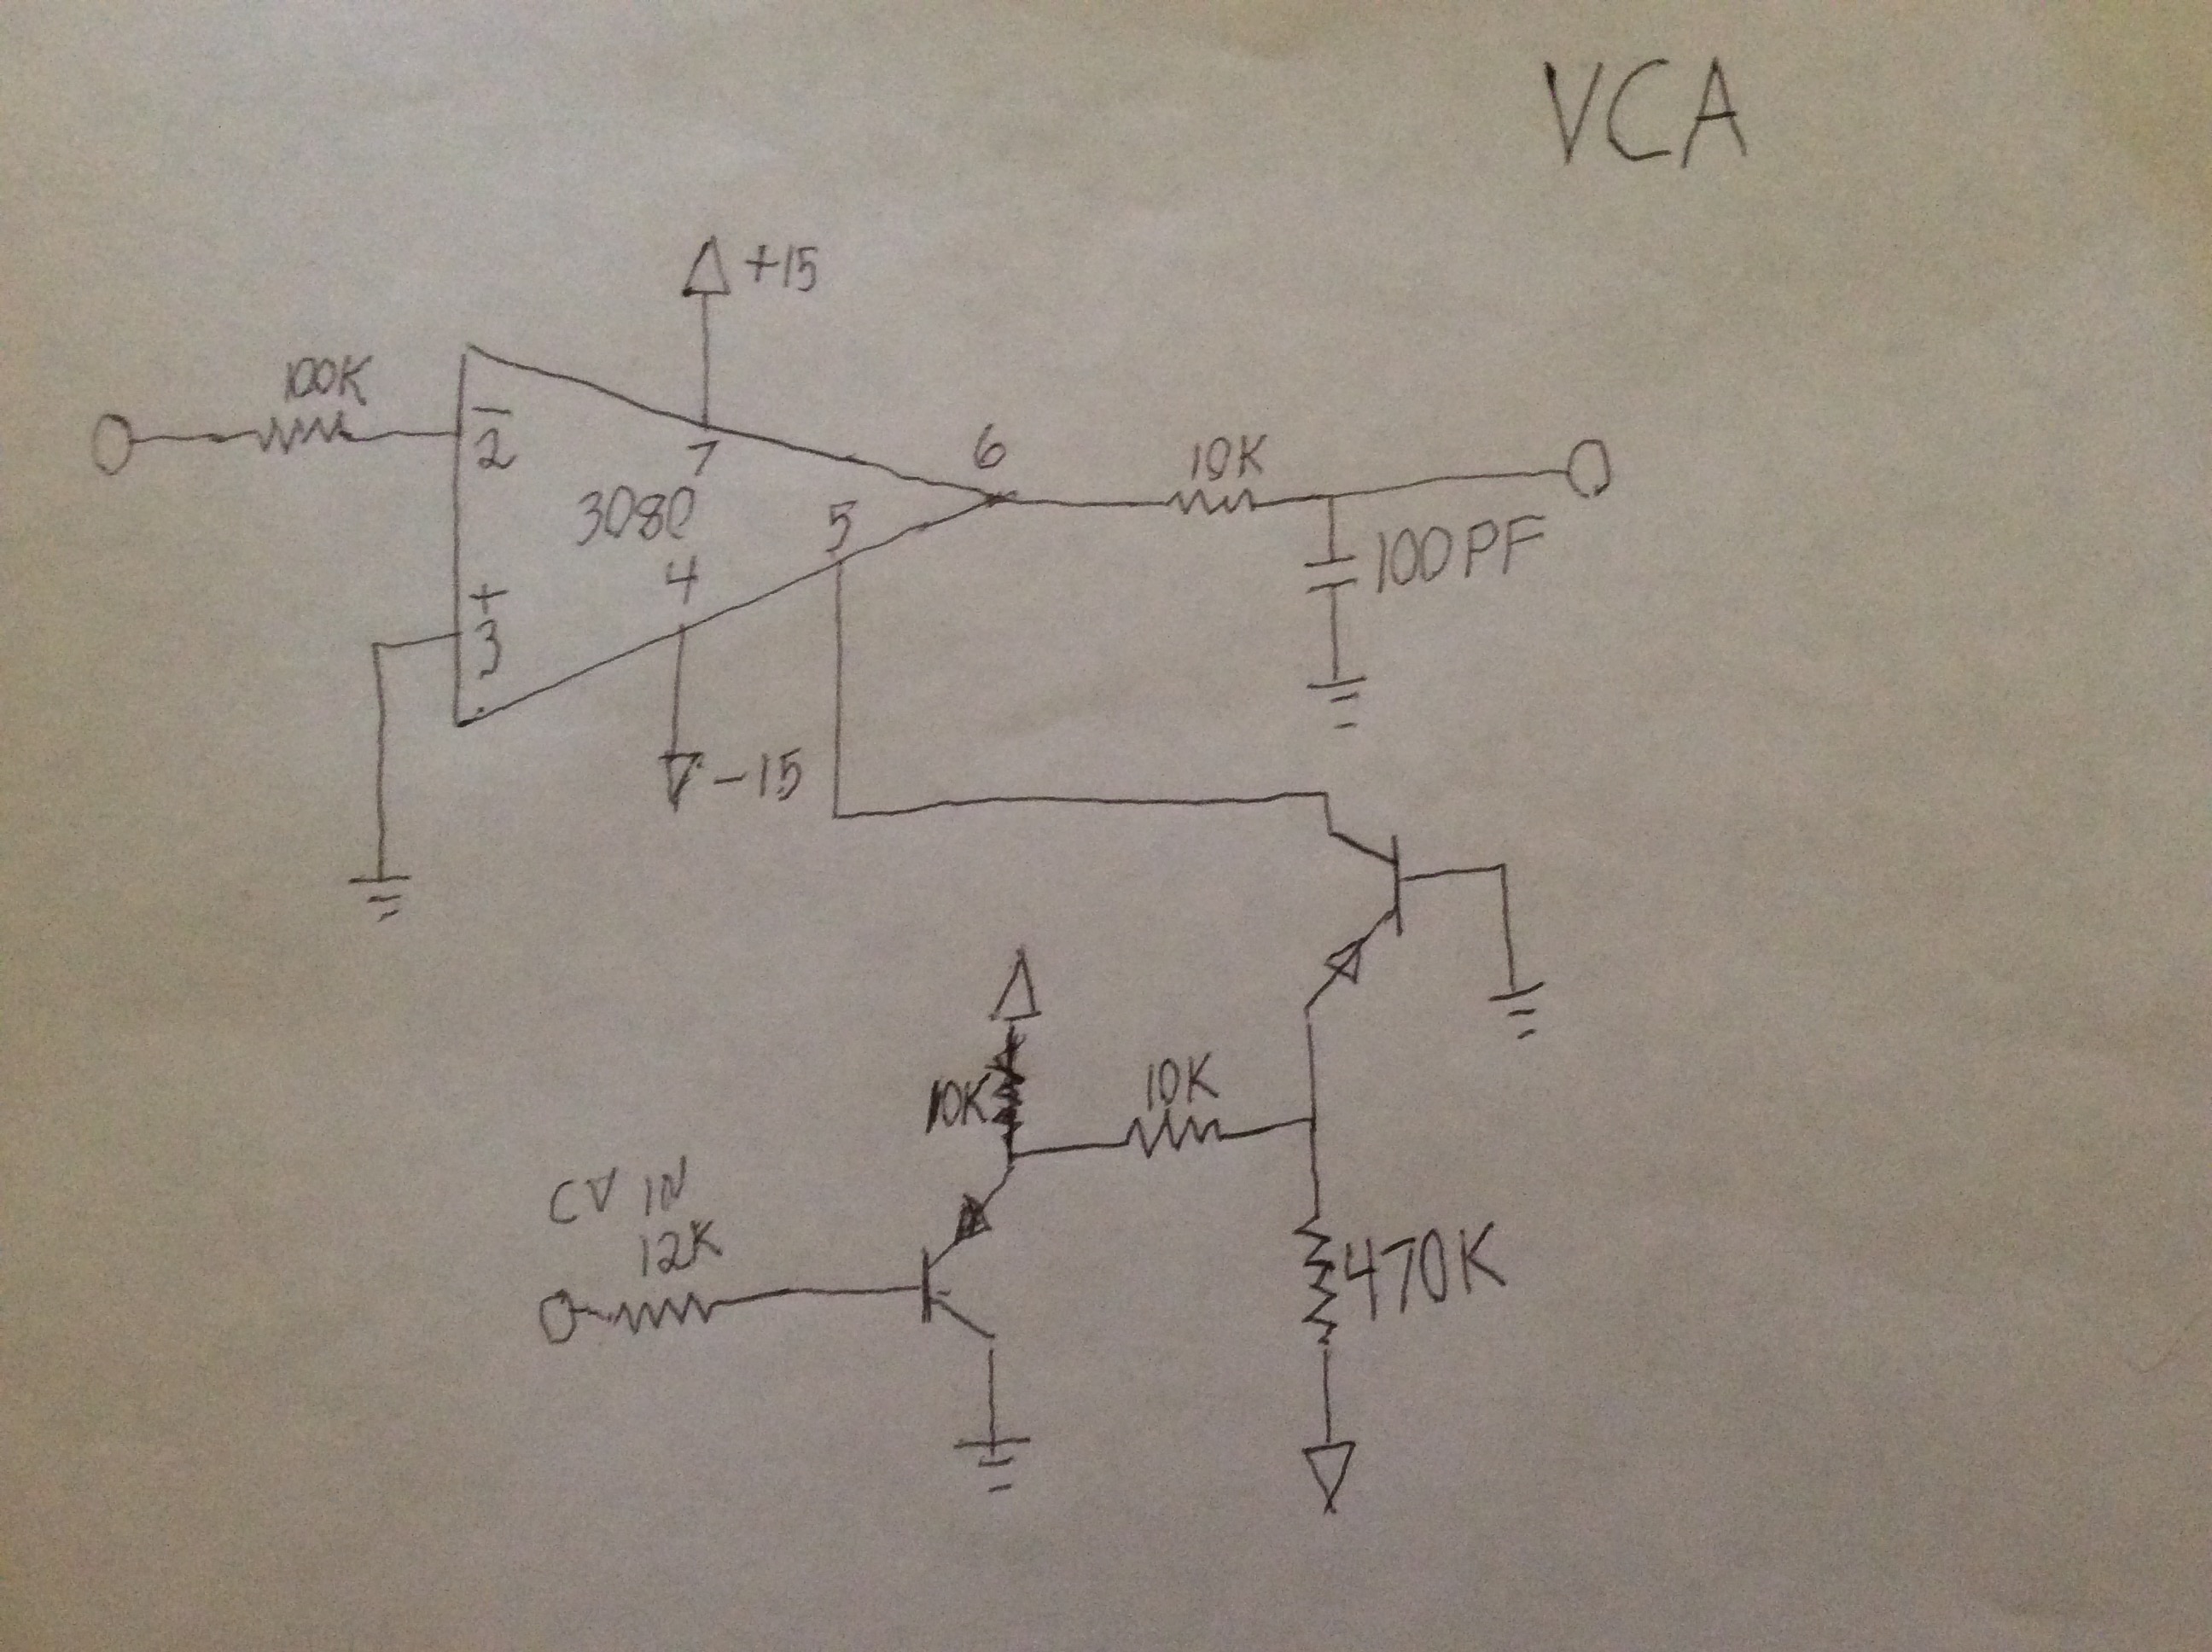 VCA
+15
100K
−
2
7
6
10K
3080
5
100PF
4
+
3
−15
10K
10K
CV IN
12K
470K